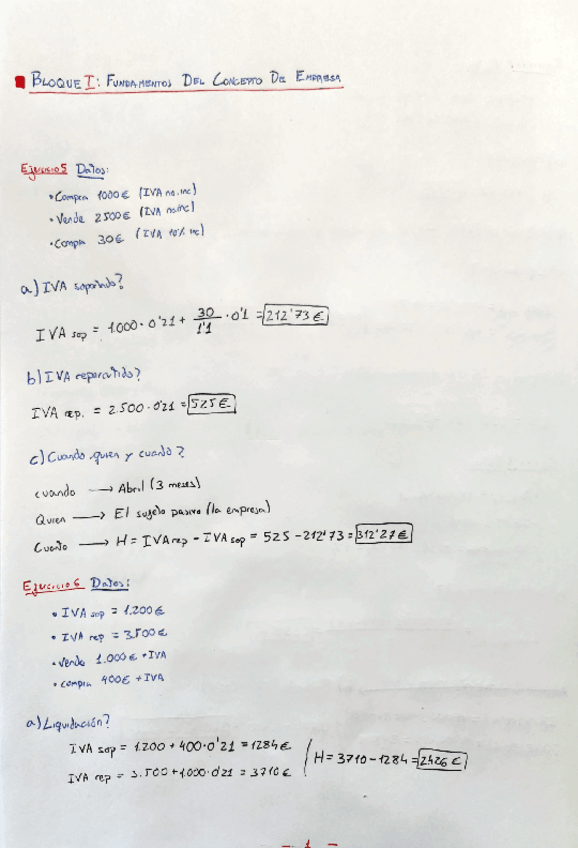 BLOQUE I: FUNDAMENTOS DEL CONCEPTO DE EMPRESA
Ejercicio 5 Datos:
• Compra 1000€ (IVA no.inc)
• Vende 2500€ (IVA no.inc)
• Compra 30€ (IVA 10% inc)
a) IVA soportado?
IVA sop = 1000 · 0'21 + 30/1'1 · 0'1 = 212'73€
b) IVA repercutido?
IVA rep. = 2.500 · 0'21 = 525€
c) Cuando, quien y cuanto?
cuando → Abril (3 meses)
Quien → El sujeto pasivo (la empresa)
Cuanto → H = IVA rep - IVA sop = 525 - 212'73 = 312'27€
Ejercicio 6 Datos:
• IVA sop = 1.200€
• IVA rep = 3.500€
• Vende 1.000€ + IVA
• compra 400€ + IVA
a) Liquidación?
IVA sop = 1.200 + 400 · 0'21 = 1284€
IVA rep = 3.500 + 1.000 · 0'21 = 3710€
H = 3710 - 1284 = 2426€
- 1 -